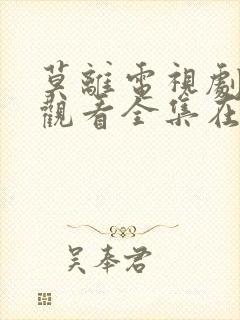 莫離電視劇
觀看全集在
吴奉君